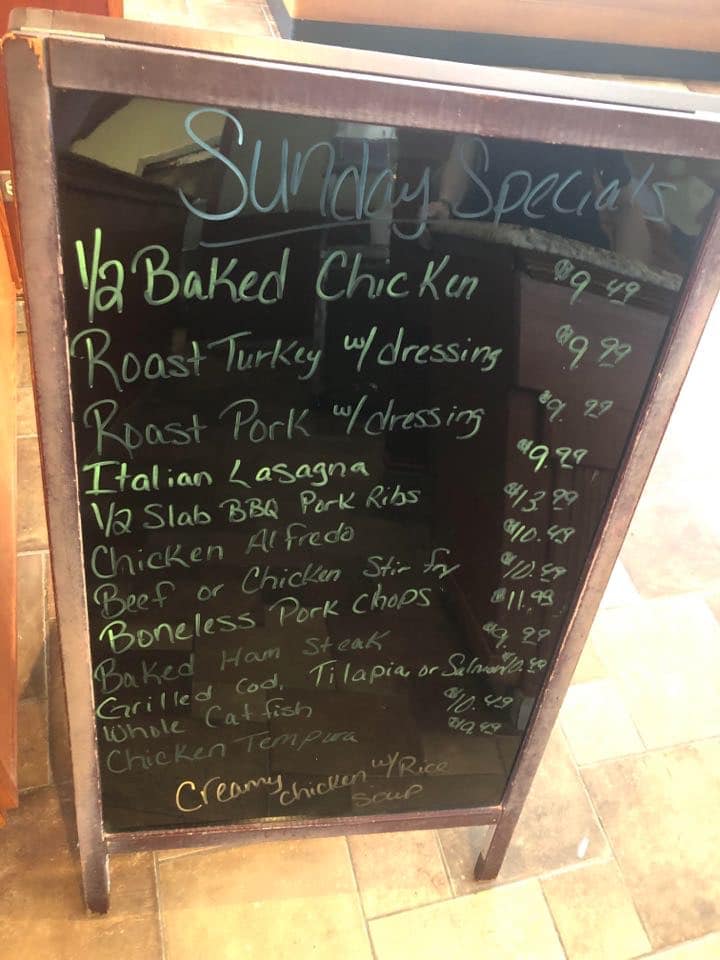 Sunday Specials
1/2 Baked Chicken $9.49
Roast Turkey w/dressing $9.99
Roast Pork w/dressing $9.99
Italian Lasagna $9.99
1/2 Slab BBQ Pork Ribs $13.99
Chicken Alfredo $10.49
Beef or Chicken Stir fry $10.49
Boneless Pork Chops $11.99
Baked Ham Steak $9.99
Grilled Cod, Tilapia or Salmon
Whole Catfish $10.49
Chicken Tempura
Creamy chicken w/Rice
soup